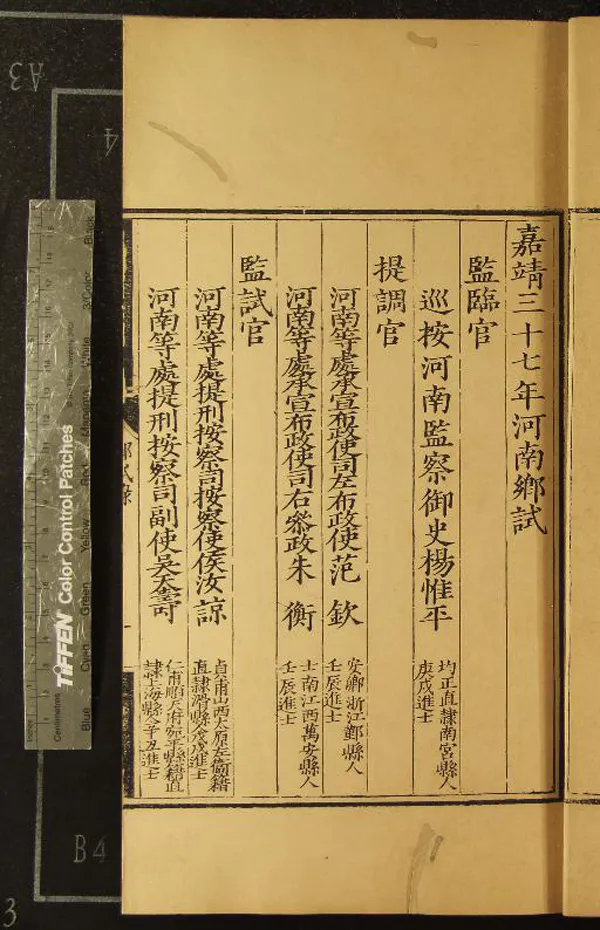 嘉靖三十七年河南鄉試
監臨官
巡按河南監察御史楊惟平
均正直隸南宮縣人
庚戌進士
提調官
河南等處承宣布政使司左布政使范欽
安卿浙江鄞縣人
壬辰進士
河南等處承宣布政使司右叅政朱衡
士南江西萬安縣人
壬辰進士
監試官
河南等處提刑按察司按察使侯汝諒
貞甫山西太原左衞籍
直隸滑縣人戊戌進士
河南等處提刑按察司副使吳天壽
仁甫順天府宛平縣籍直
隸上海縣人辛丑進士
A3
4
B4
3
TIFFEN Color Control Patches
Centimetres
Inches
Blue
Cyan
Green
Yellow
Red
White
3/Color
Black